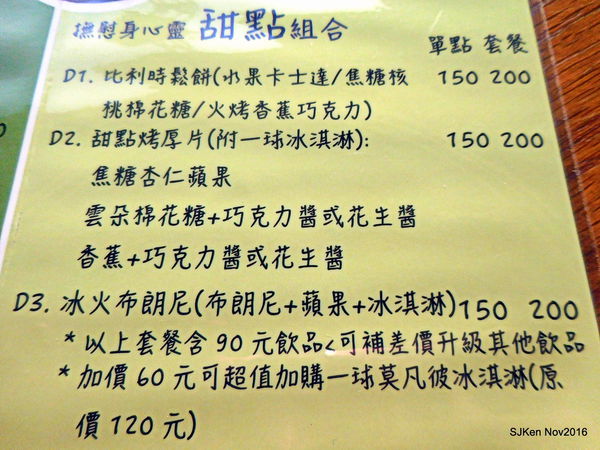 撫慰身心靈 甜點組合
單點 套餐
D1. 比利時鬆餅(水果卡士達/焦糖核 150 200
桃棉花糖/火烤香蕉巧克力)
D2. 甜點烤厚片(附一球冰淇淋): 150 200
焦糖杏仁蘋果
雲朵棉花糖+巧克力醬或花生醬
香蕉+巧克力醬或花生醬
D3. 冰火布朗尼(布朗尼+蘋果+冰淇淋) 150 200
*以上套餐含 90 元飲品<可補差價升級其他飲品
*加價 60 元可超值加購一球莫凡彼冰淇淋(原
價 120 元)
SJKen Nov2016